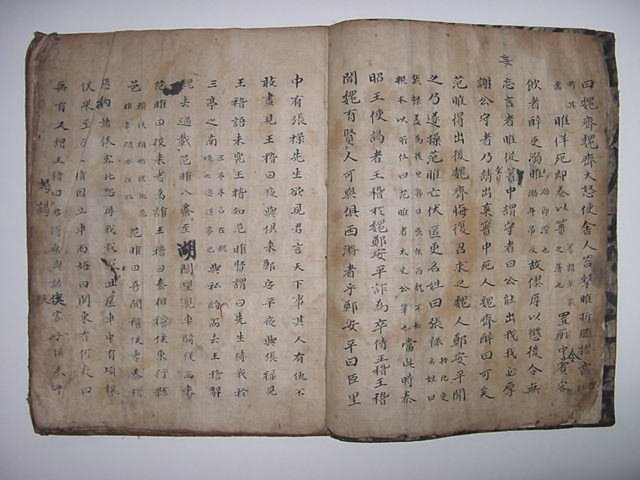 曰魏齊魏齊大怒使舍人笞擊睢折脇摺齒
睢佯死即卷以簀置廁中賓客
飲者醉更溺睢故僇辱以懲後令無
妄
忘言者睢從簀中謂守者曰公能出我我必厚
謝公守者乃請出棄簀中死人魏齊醉曰可矣
范睢得出後魏齊悔復召求之魏人鄭安平聞
之乃遂操范睢亡伏匿更名姓曰張祿
當此時秦
昭王使謁者王稽於魏鄭安平詐為卒侍王稽王稽
問魏有賢人可與俱西游者乎鄭安平曰臣里
中有張祿先生欲見君言天下事其人有仇不
敢晝見王稽曰夜與俱來鄭安平夜與張祿見
王稽語未究王稽知范睢賢謂曰先生待我於
三亭之南與私約而去王稽辭
魏去過載范睢入秦至湖關望見車騎從西來
范睢曰彼來者為誰王稽曰秦相穰侯東行縣
邑范睢曰吾聞穰侯專秦權
惡納諸侯客此恐辱我我寧且匿車中有頃穰
侯果至王稽因立車而語曰關東有何變曰
無有又謂王稽曰君得無與諸侯客子俱來乎